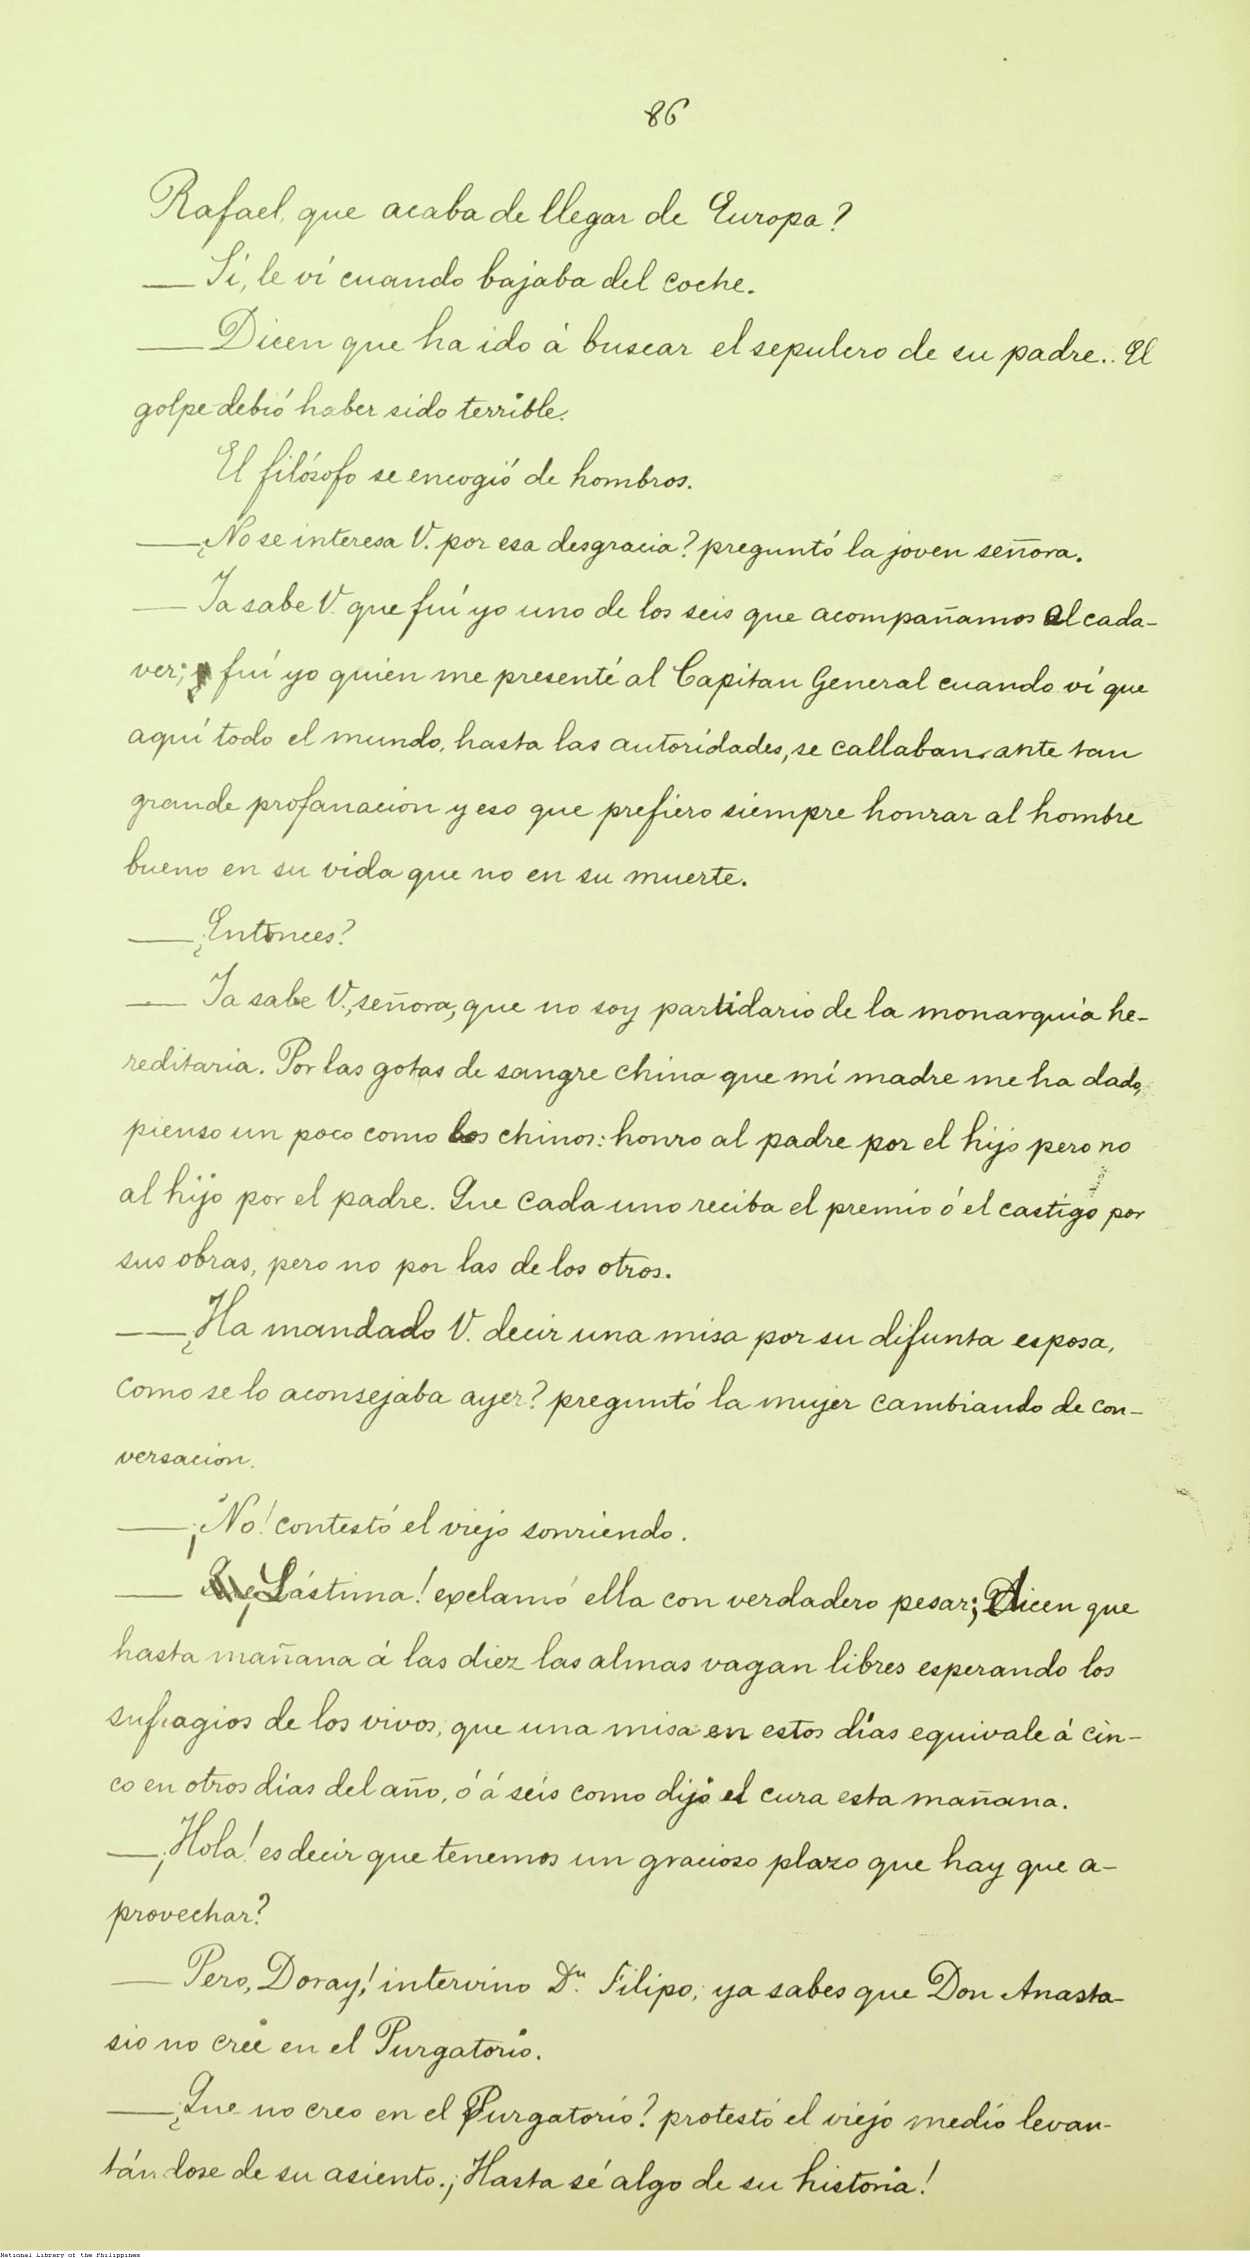 86
Rafael, que acaba de llegar de Europa?
— Sí, le ví cuando bajaba del coche.
— Dicen que ha ido á buscar el sepulcro de su padre.. El
golpe debió haber sido terrible.
El filósofo se encogió de hombros.
— ¿No se interesa V. por esa desgracia? preguntó la joven señora.
— Ya sabe V. que fuí yo uno de los seis que acompañamos al cada-
ver; fuí yo quien me presenté al Capitan General cuando ví que
aquí todo el mundo, hasta las autoridades, se callaban ante tan
grande profanacion y eso que prefiero siempre honrar al hombre
bueno en su vida que no en su muerte.
— ¿Entonces?
— Ya sabe V., señora, que no soy partidario de la monarquía he-
reditaria. Por las gotas de sangre china que mi madre me ha dado,
pienso un poco como los chinos: honro al padre por el hijo pero no
al hijo por el padre. Que cada uno reciba el premio ó el castigo por
sus obras, pero no por las de los otros.
— ¿Ha mandado V. decir una misa por su difunta esposa,
como se lo aconsejaba ayer? preguntó la mujer cambiando de con-
versacion.
— ¡No! contestó el viejo sonriendo.
— ¡Lástima! exclamó ella con verdadero pesar; Dicen que
hasta mañana á las diez las almas vagan libres esperando los
sufragios de los vivos, que una misa en estos días equivale á cin-
co en otros días del año, ó á seis como dijo el cura esta mañana.
— ¡Hola! es decir que tenemos un gracioso plazo que hay que a-
provechar?
— Pero, Doray! intervino Dn. Filipo; ya sabes que Don Anasta-
sio no cree en el Purgatorio.
— ¿Que no creo en el Purgatorio? protestó el viejo medio levan-
tándose de su asiento. ¡Hasta sé algo de su historia!
National Library of the Philippines